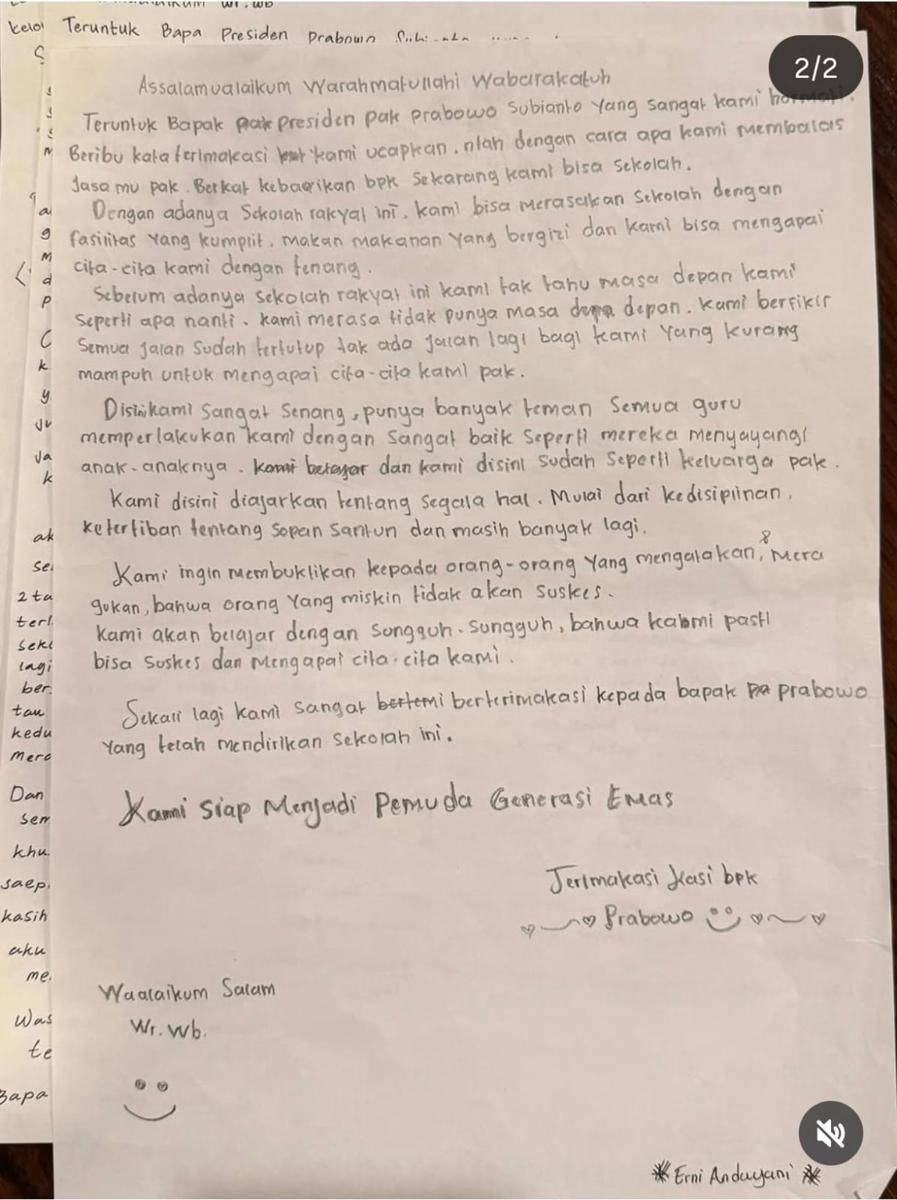 2/2
Teruntuk Bapa Presiden Prabowo
Assalamualaikum Warahmatullahi Wabarakatuh
Teruntuk Bapak pak presiden pak prabowo subianto yang sangat kami hormati.
Beribu kata terimakasi kami ucapkan. ntah dengan cara apa kami membalas
Jasa mu pak. Berkat kebaikan bpk sekarang kami bisa sekolah.
Dengan adanya sekolah rakyat ini. kami bisa merasakan sekolah dengan
fasilitas yang kumplit. makan makanan yang bergizi dan kami bisa mengapai
cita-cita kami dengan tenang.
Sebelum adanya sekolah rakyat ini kami tak tahu masa depan kami
seperti apa nanti. kami merasa tidak punya masa depan. kami berfikir
semua jalan sudah tertutup tak ada jalan lagi bagi kami yang kurang
mampuh untuk mengapai cita-cita kami pak.
Disini kami sangat senang, punya banyak teman semua guru
memperlakukan kami dengan sangat baik seperti mereka menyayangi
anak-anaknya. kami belajar dan kami disini sudah seperti keluarga pak.
Kami disini diajarkan tentang segala hal. Mulai dari kedisiplinan,
ketertiban tentang sopan santun dan masih banyak lagi.
Kami ingin membuktikan kepada orang-orang yang mengatakan, & mera
gukan, bahwa orang yang miskin tidak akan suskes.
kami akan belajar dengan sungguh-sungguh, bahwa kami pasti
bisa suskes dan mengapai cita-cita kami.
Sekali lagi kami sangat bertemi berterimakasi kepada bapak pa prabowo
yang telah mendirikan sekolah ini.
Kami Siap Menjadi Pemuda Generasi Emas
Terimakasi kasi bpk
Prabowo
Waalaikum Salam
Wr. Wb.
Erni Andayani
kelo
ak
2 ta
terl
lagi
ber
tau
kedu
mera
Dan
sem
khu
saep
kasih
aku
me.
Was
te
Bapa